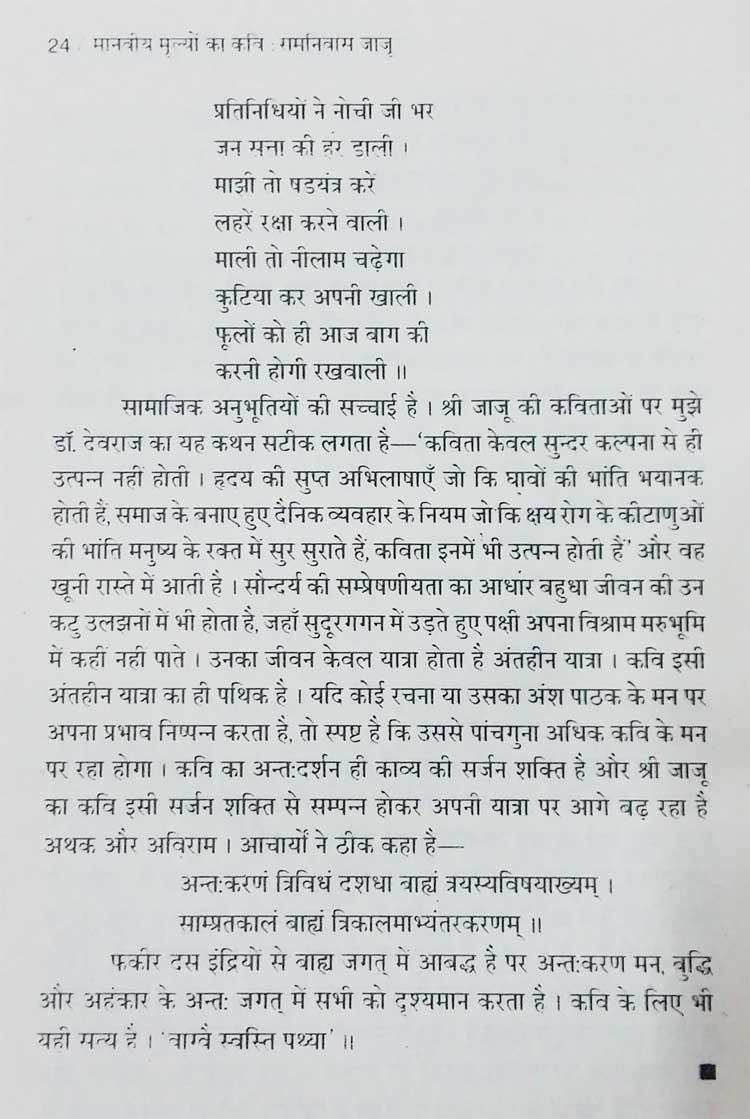 24 / मानवीय मूल्यों का कवि : रामनिवास जाजू
प्रतिनिधियों ने नोची जी भर
जन सत्ता की हर डाली ।
माझी तो षडयंत्र करें
लहरें रक्षा करने वाली ।
माली तो नीलाम चढ़ेगा
कुटिया कर अपनी खाली ।
फूलों को ही आज बाग की
करनी होगी रखवाली ॥
सामाजिक अनुभूतियों की सच्चाई है । श्री जाजू की कविताओं पर मुझे
डॉ. देवराज का यह कथन सटीक लगता है—'कविता केवल सुन्दर कल्पना से ही
उत्पन्न नहीं होती । हृदय की सुप्त अभिलाषाएँ जो कि घावों की भांति भयानक
होती हैं, समाज के बनाए हुए दैनिक व्यवहार के नियम जो कि क्षय रोग के कीटाणुओं
की भांति मनुष्य के रक्त में सुर सुराते हैं, कविता इनमें भी उत्पन्न होती हैं' और वह
खूनी रास्ते में आती है । सौन्दर्य की सम्प्रेषणीयता का आधार बहुधा जीवन की उन
कटु उलझनों में भी होता है, जहाँ सुदूरगगन में उड़ते हुए पक्षी अपना विश्राम मरुभूमि
में कहीं नही पाते । उनका जीवन केवल यात्रा होता है अंतहीन यात्रा । कवि इसी
अंतहीन यात्रा का ही पथिक है । यदि कोई रचना या उसका अंश पाठक के मन पर
अपना प्रभाव निष्पन्न करता है, तो स्पष्ट है कि उससे पांचगुना अधिक कवि के मन
पर रहा होगा । कवि का अन्त:दर्शन ही काव्य की सर्जन शक्ति है और श्री जाजू
का कवि इसी सर्जन शक्ति से सम्पन्न होकर अपनी यात्रा पर आगे बढ़ रहा है
अथक और अविराम । आचार्यों ने ठीक कहा है—
अन्त:करणं त्रिविधं दशधा बाह्यं त्रयस्यविषयाख्यम् ।
साम्प्रतकालं बाह्यं त्रिकालमाभ्यंतरकरणम् ॥
फकीर दस इंद्रियों से वाह्य जगत् में आबद्ध है पर अन्त:करण मन, बुद्धि
और अहंकार के अन्त: जगत् में सभी को दृश्यमान करता है । कवि के लिए भी
यही सत्य है । 'वाग्वै स्वस्ति पथ्या' ॥